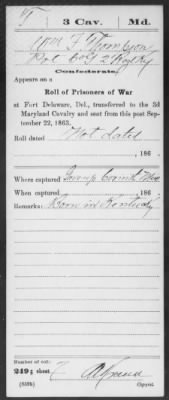 T | 3 Cav. | Md.
Wm F Thompson
Pvt Co G 2 Ky
Confederate.
Appears on a
Roll of Prisoners of War
at Fort Delaware, Del., transferred to the 3d
Maryland Cavalry and sent from this post Sep-
tember 22, 1863.
Roll dated Not dated
, 186
Where captured Camp Corinth Miss
When captured , 186
Remarks: Born in Kentucky
Number of roll:
249; sheet 7
Copyist.